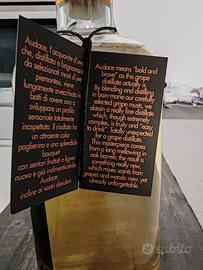 Audace, l'acquavite d'uva
che, distillata a bagnomaria
da selezionati mosti d'uve
piemontesi, viene
lungamente invecchiata in
botti di rovere sino a
sviluppare un profilo
sensoriale totalmente
inaspettato. Il risultato ha
un color oro
paglierino e una splendido
bouquet
con sentori fruttati e lignei:
nuova e già indimenticabile
Audace
incline ai vostri desideri.
Audace means "bold and
brave" as this grape
distillate actually is.
By blending and distilling
in bain-marie our carefully
selected grape musts, we
obtain a really fine grape
distillate which, though
extremely fine and
complex, is fruity and "easy
to drink". Totally unexpected
for a grape distillate.
This masterpiece comes
from a long mellowing in
oak barrels: the result is
something really new,
which mixes scents from
grapes and woods: new, yet
already unforgettable.
subito